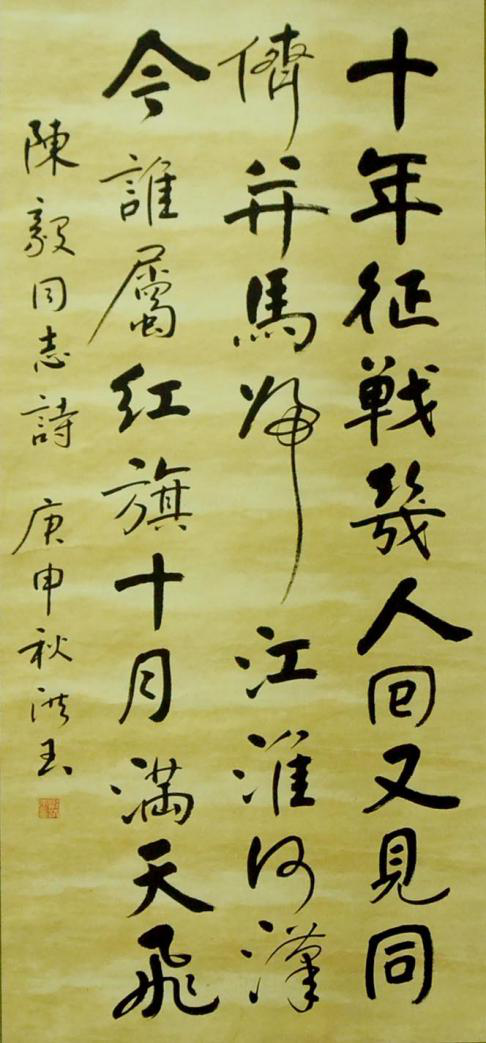 十年征戰幾人回又見同
儕并馬歸江淮河漢
今誰屬红旗十月满天飛
陳毅同志詩 庚申秋洪玉